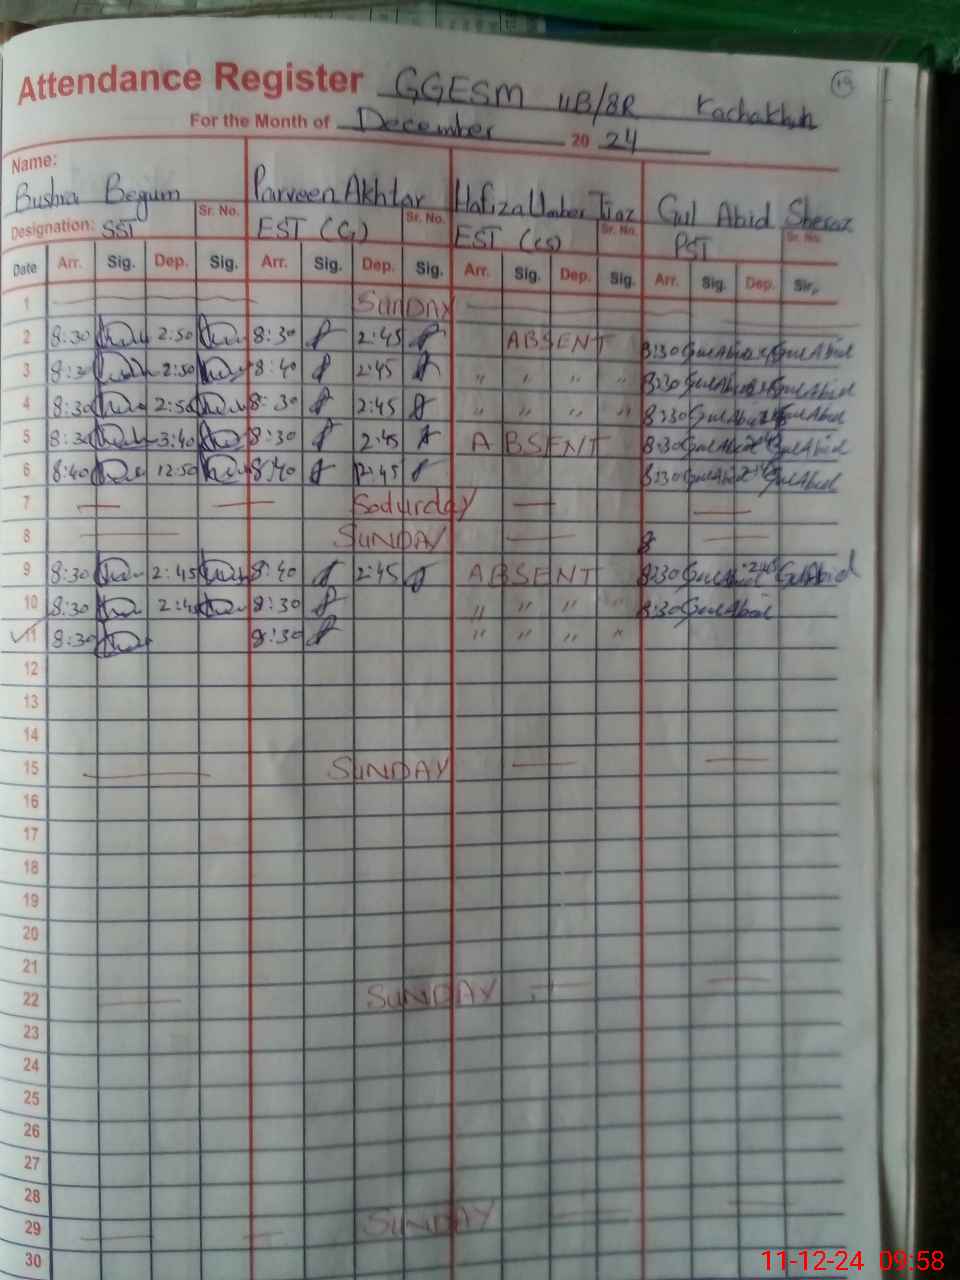 Attendance Register GGESM 11B/8R Kachakhuh
For the Month of December 20 24
Name:
Bushra Begum Parveen Akhtar Hafiza Umber Tiaz Gul Abid Sheraz
Designation: SST Sr. No. EST (G) Sr. No. EST (CS) Sr. No. PST Sr. No.
Date Arr. Sig. Dep. Sig. Arr. Sig. Dep. Sig. Arr. Sig. Dep. Sig. Arr. Sig. Dep. Sir.
1 SUNDAY
2 8:30 2:50 8:30 2:45 ABSENT 8:30 GulAbid GulAbid
3 8:30 2:50 8:40 2:45 " " " " 8:30 GulAbid GulAbid
4 8:30 2:50 8:30 2:45 " " " " 8:30 GulAbid GulAbid
5 8:30 3:40 8:30 2:45 ABSENT 8:30 GulAbid GulAbid
6 8:40 12:50 8:40 12:45 8:30 GulAbid GulAbid
7 Saturday
8 SUNDAY 8
9 8:30 2:45 8:40 2:45 ABSENT 8:30 GulAbid 2:45 GulAbid
10 8:30 8:30 " " " " 8:30 GulAbid
11 8:30 8:30 " " " "
12
13
14
15 SUNDAY
16
17
18
19
20
21
22 SUNDAY
23
24
25
26
27
28
29 SUNDAY
30
11-12-24 09:58